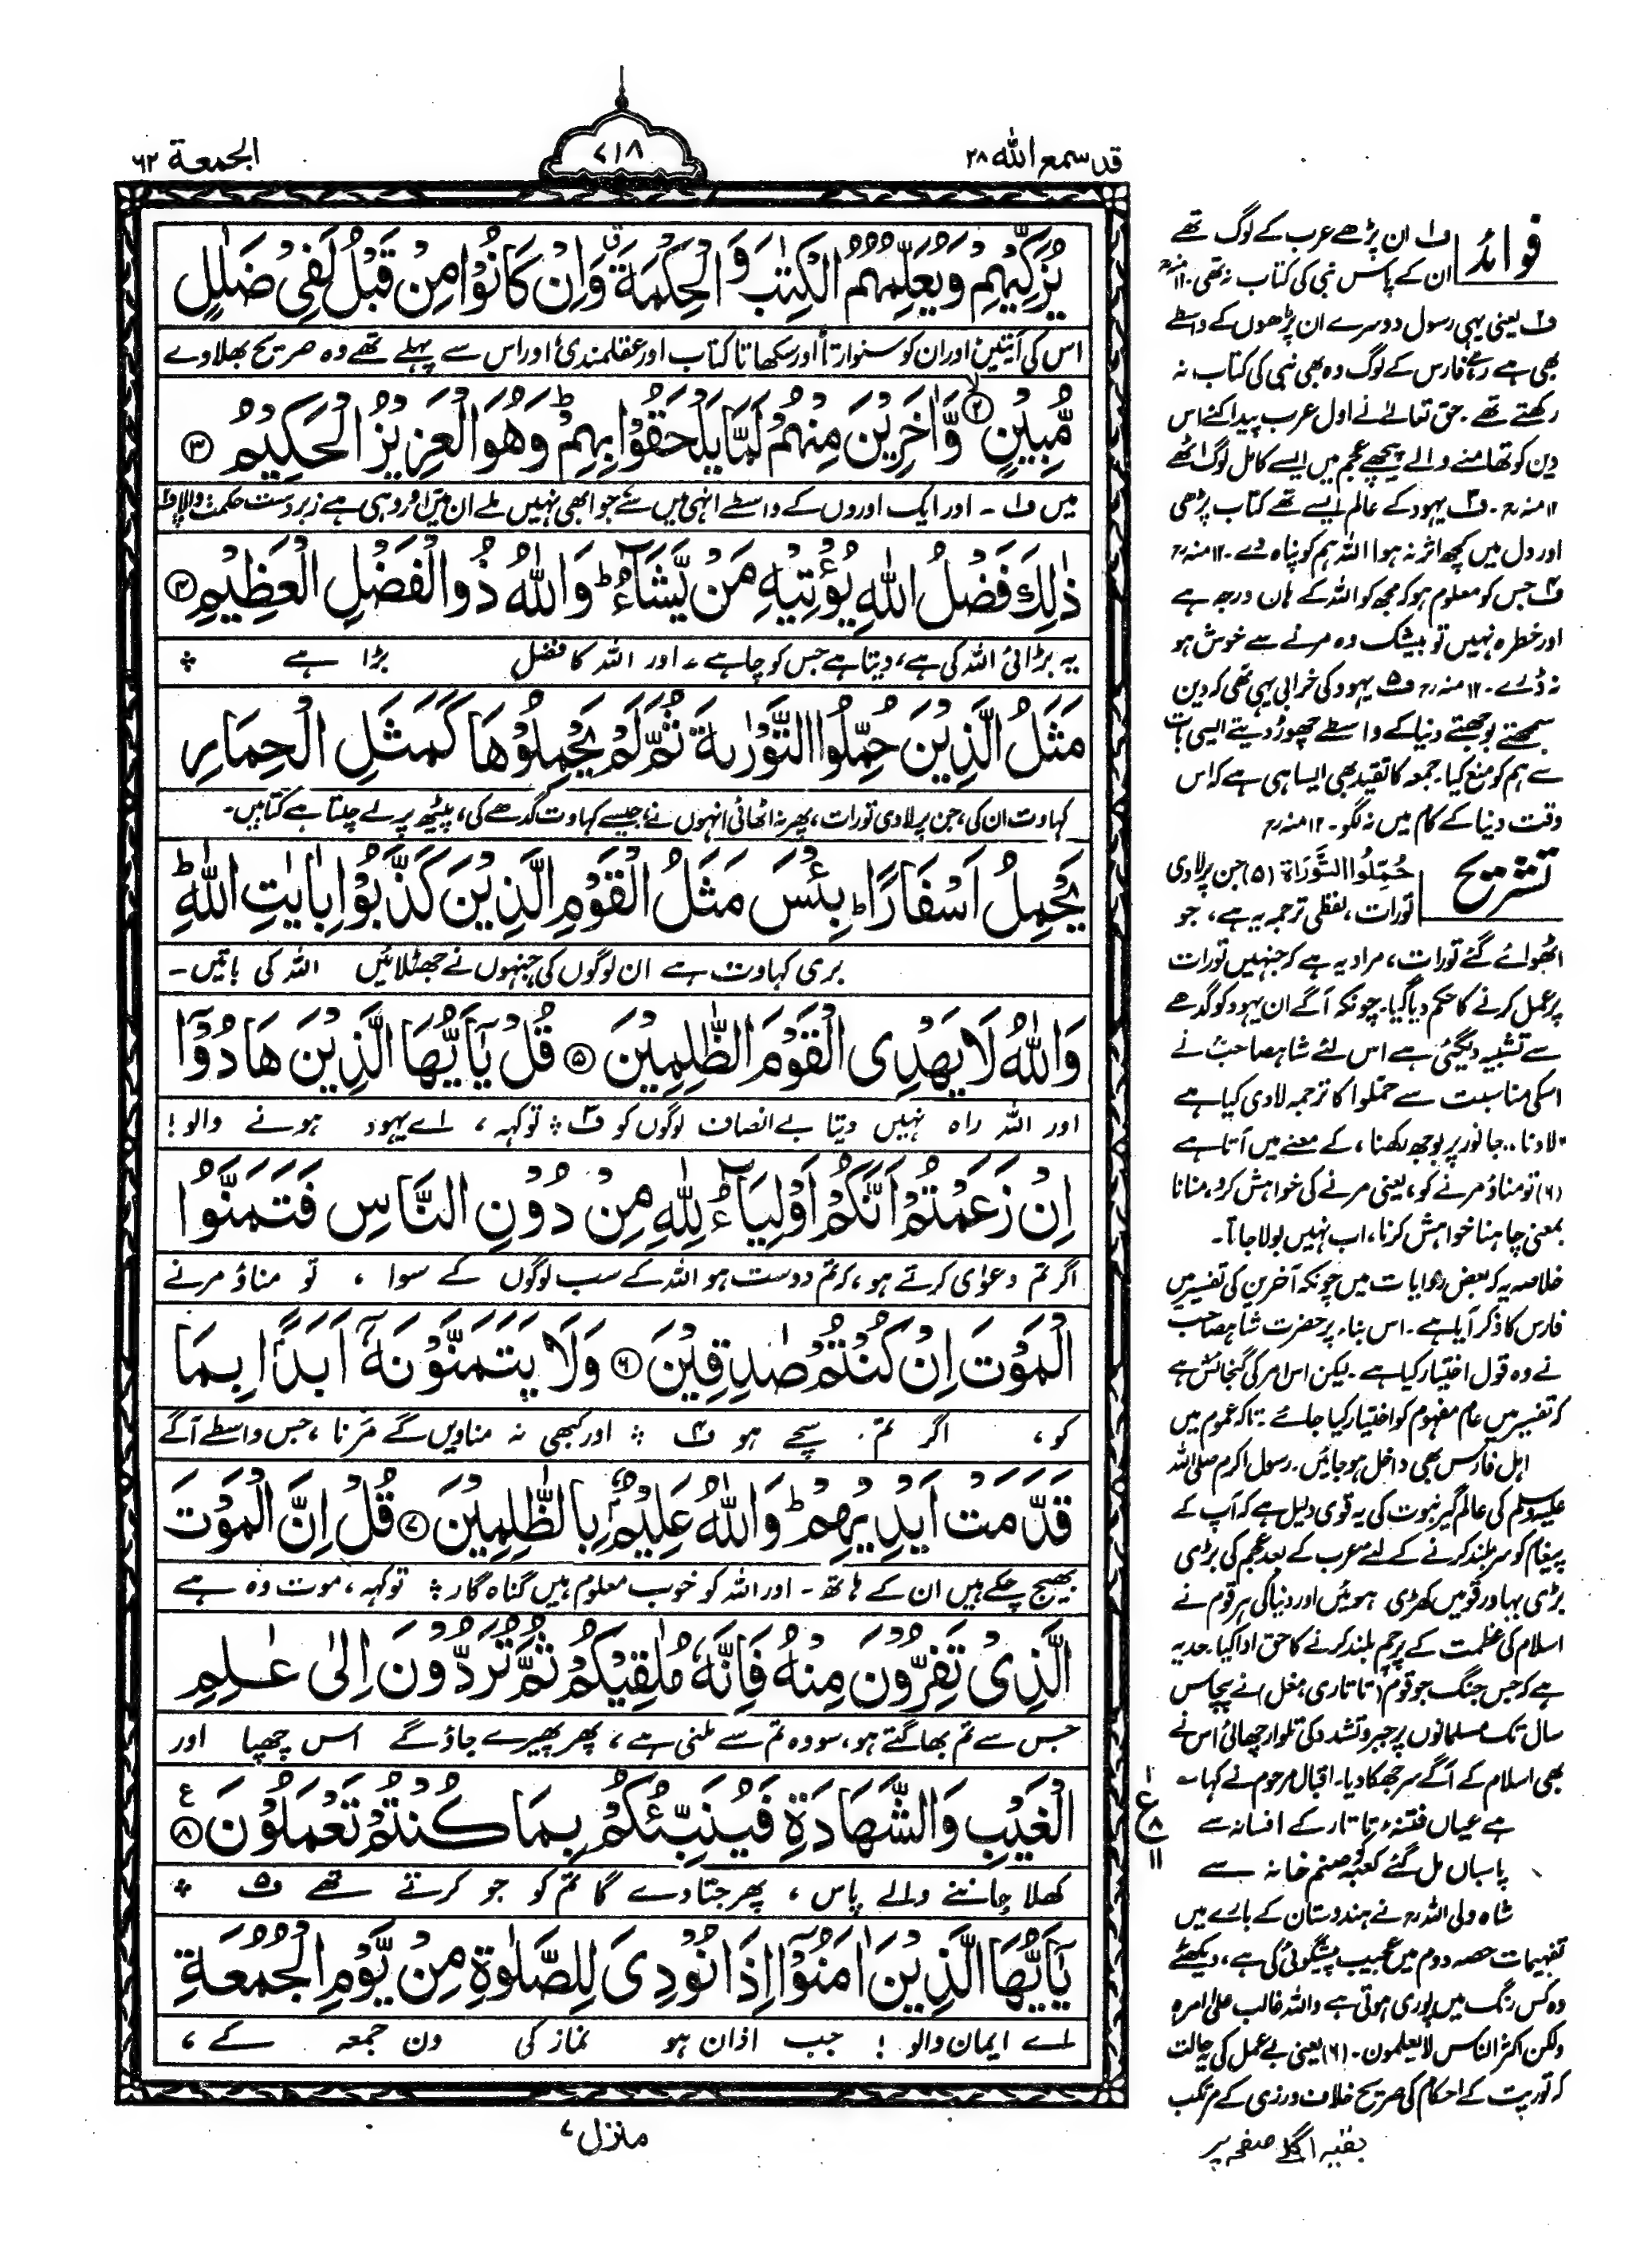 قد سمع الله ۲۸
۷۱۸
الجمعة ۶۲
يُزَكِّيْهِمْ وَيُعَلِّمُهُمُ الْكِتٰبَ وَالْحِكْمَةَ ۗ وَاِنْ كَانُوْا مِنْ قَبْلُ لَفِيْ ضَلٰلٍ
اس کی آیتیں اور ان کو سنوارتا اور سکھاتا کتاب اور عقلمندی اور اس سے پہلے تھے وہ صریح بھلاوے
مُّبِيْنٍ ۝۲ وَّاٰخَرِيْنَ مِنْهُمْ لَمَّا يَلْحَقُوْا بِهِمْ ؕ وَهُوَ الْعَزِيْزُ الْحَكِيْمُ ۝۳
میں ف۱ ۔ اور ایک اوروں کے واسطے انہی میں سے جو ابھی نہیں ملے ان میں اور وہی ہے زبردست حکمت والا ف۲
ذٰلِكَ فَضْلُ اللّٰهِ يُؤْتِيْهِ مَنْ يَّشَآءُ ؕ وَاللّٰهُ ذُو الْفَضْلِ الْعَظِيْمِ ۝۴
یہ بڑائی اللہ کی ہے، دیتا ہے جس کو چاہے ۔ اور اللہ کا فضل بڑا ہے ؞
مَثَلُ الَّذِيْنَ حُمِّلُوا التَّوْرٰىةَ ثُمَّ لَمْ يَحْمِلُوْهَا كَمَثَلِ الْحِمَارِ
کہاوت ان کی، جن پر لادی تورات، پھر نہ اٹھائی انہوں نے، جیسے کہاوت گدھے کی، پیٹھ پر لے چلتا ہے کتابیں۔
يَحْمِلُ اَسْفَارًا ؕ بِئْسَ مَثَلُ الْقَوْمِ الَّذِيْنَ كَذَّبُوْا بِاٰيٰتِ اللّٰهِ ؕ
بری کہاوت ہے ان لوگوں کی جنہوں نے جھٹلائیں اللہ کی باتیں۔
وَاللّٰهُ لَا يَهْدِى الْقَوْمَ الظّٰلِمِيْنَ ۝۵ قُلْ يٰٓاَيُّهَا الَّذِيْنَ هَادُوْٓا
اور اللہ راہ نہیں دیتا بے انصاف لوگوں کو ف۳ ؞ تو کہہ، اے یہود ہونے والو!
اِنْ زَعَمْتُمْ اَنَّكُمْ اَوْلِيَآءُ لِلّٰهِ مِنْ دُوْنِ النَّاسِ فَتَمَنَّوُا
اگر تم دعوٰی کرتے ہو، کہ تم دوست ہو اللہ کے سب لوگوں کے سوا ، تو مناؤ مرنے
الْمَوْتَ اِنْ كُنْتُمْ صٰدِقِيْنَ ۝۶ وَلَا يَتَمَنَّوْنَهٗٓ اَبَدًۢا بِمَا
کو، اگر تم سچے ہو ف۴ ؞ اور کبھی نہ مناویں گے مرنا ، جس واسطے آگے
قَدَّمَتْ اَيْدِيْهِمْ ؕ وَاللّٰهُ عَلِيْمٌۢ بِالظّٰلِمِيْنَ ۝۷ قُلْ اِنَّ الْمَوْتَ
بھیج چکے ہیں ان کے ہاتھ ۔ اور اللہ کو خوب معلوم ہیں گناہ گار ؞ تو کہہ، موت وہ ہے
الَّذِيْ تَفِرُّوْنَ مِنْهُ فَاِنَّهٗ مُلٰقِيْكُمْ ثُمَّ تُرَدُّوْنَ اِلٰى عٰلِمِ
جس سے تم بھاگتے ہو، سو وہ تم سے ملنی ہے، پھر پھیرے جاؤ گے اس چھپا اور
الْغَيْبِ وَالشَّهَادَةِ فَيُنَبِّئُكُمْ بِمَا كُنْتُمْ تَعْمَلُوْنَ ۝۸ ع
کھلا جاننے والے پاس، پھر جتا دے گا تم کو جو کرتے تھے ف۵ ؞
يٰٓاَيُّهَا الَّذِيْنَ اٰمَنُوْٓا اِذَا نُوْدِيَ لِلصَّلٰوةِ مِنْ يَّوْمِ الْجُمُعَةِ
اے ایمان والو ! جب اذان ہو نماز کی دن جمعہ کے ،
منزل ۷
۱
ع
۸
۱۱
فوائد
ف۱ ان پڑھے عرب کے لوگ تھے
ان کے پاس نبی کی کتاب نہ تھی۔ ۱۲ منہ رح
ف۲ یعنی یہی رسول دوسرے ان پڑھوں کے واسطے
بھی ہے فارس کے لوگ وہ بھی نبی کی کتاب نہ
رکھتے تھے۔ حق تعالےٰ نے اول عرب پیدا کئے اس
دین کو تھامنے والے پیچھے عجم میں ایسے کامل لوگ اٹھے
۱۲ منہ رح۔ ف۳ یہود کے عالم ایسے تھے کتاب پڑھی
اور دل میں کچھ اثر نہ ہوا اللہ ہم کو پناہ دے۔ ۱۲ منہ رح
ف۴ جس کو معلوم ہو کہ مجھ کو اللہ کے ہاں درجہ ہے
اور خطرہ نہیں تو بیشک وہ مرنے سے خوش ہو
نہ ڈرے۔ ۱۲ منہ رح ف۵ یہود کی خرابی یہی تھی کہ دین
سمجھتے بوجھتے دنیا کے واسطے چھوڑ دیتے ایسی بات
سے ہم کو منع کیا۔ جمعہ کا تقید بھی ایسا ہی ہے کہ اس
وقت دنیا کے کام میں نہ لگو۔ ۱۲ منہ رح
تشریح
حُمِّلُوا التَّوْرَاةَ (۵) جن پر لادی
تورات، لفظی ترجمہ یہ ہے، جو
اٹھوائے گئے تورات، مراد یہ ہے کہ جنہیں تورات
پر عمل کرنے کا حکم دیا گیا۔ چونکہ آگے ان یہود کو گدھے
سے تشبیہ دیگئی ہے اس لئے شاہصاحبؒ نے
اسکی مناسبت سے حملوا کا ترجمہ لادی کیا ہے
"لادنا" جانور پر بوجھ رکھنا، کے معنے میں آتا ہے
(۶) تو مناؤ مرنے کو، یعنی مرنے کی خواہش کرو، منانا
بمعنی چاہنا خواہش کرنا، اب نہیں بولا جاتا۔
خلاصہ یہ کہ بعض روایات میں چونکہ آخرین کی تفسیر میں
فارس کا ذکر آیا ہے۔ اس بناء پر حضرت شاہصاحب
نے وہ قول اختیار کیا ہے۔ لیکن اس امر کی گنجائش ہے
کہ تفسیر میں عام مفہوم کو اختیار کیا جائے۔ تاکہ عموم میں
اہل فارس بھی داخل ہو جائیں۔ رسول اکرم صلی اللہ
علیہ وسلم کی عالم گیر نبوت کی یہ قوی دلیل ہے کہ آپ کے
پیغام کو سربلند کرنے کے لئے عرب کے بعد عجم کی بڑی
بڑی بہادر قومیں کھڑی ہوئیں اور دنیا کی ہر قوم نے
اسلام کی عظمت کے پرچم بلند کرنے کا حق ادا کیا۔ حد یہ
ہے کہ جس جنگ جو قوم (تاتاری مغل) نے پچاس
سال تک مسلمانوں پر جبر و تشدد کی تلوار چھائی اس نے
بھی اسلام کے آگے سر جھکا دیا۔ اقبال مرحوم نے کہا ؎
ہے عیاں فتنہء تاتار کے افسانہ سے
پاسباں مل گئے کعبہ کو صنم خانہ سے
شاہ ولی اللہ رح نے ہندوستان کے بارے میں
تفہیمات حصہ دوم میں عجیب پیشگوئی کی ہے، دیکھئے
وہ کس رنگ میں پوری ہوتی ہے واللہ غالب علیٰ امرہ
ولکن اکثر الناس لا یعلمون۔ (۶) یعنی بے عمل کی یہ حالت
کہ توریت کے احکام کی صریح خلاف ورزی کے مرتکب
بقیہ اگلے صفحہ پر